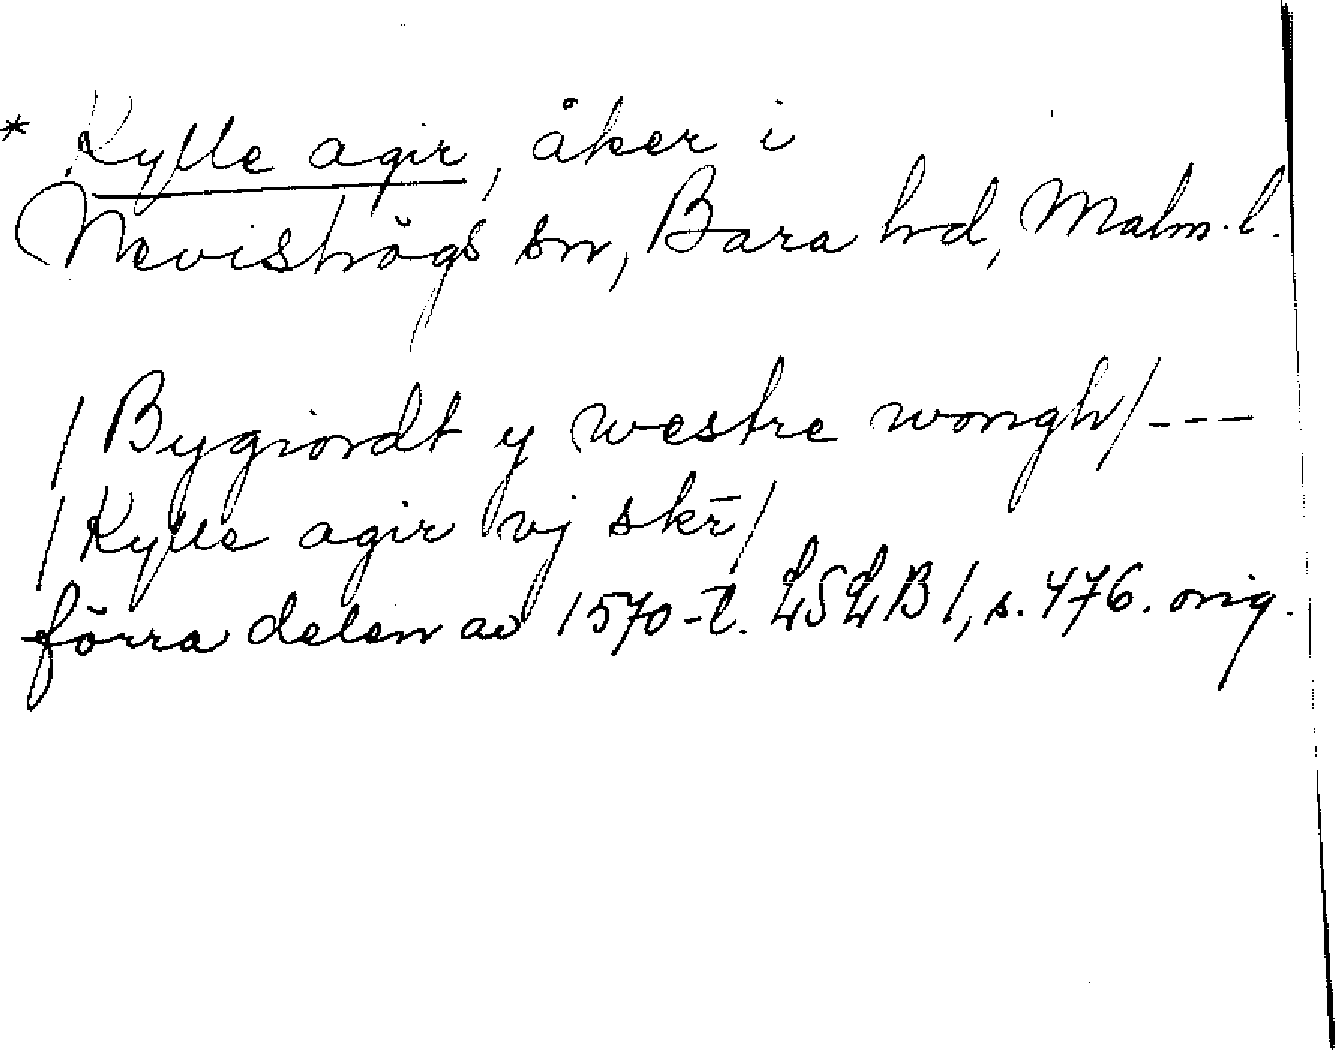 * Kylle agir, åker i
Nevishögs sn, Bara hd, Malm. l.
/ Bygiordt y westre wongh / ---
/ Kylle agir vj skr̄ /
förra delen av 1570-t. LSLB 1, s. 476. orig.